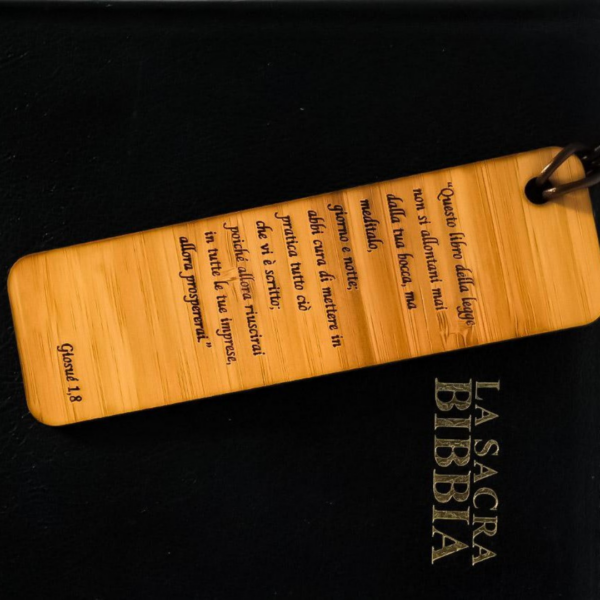 "Questo libro della legge
non si allontani mai
dalla tua bocca, ma
meditalo,
giorno e notte;
abbi cura di mettere in
pratica tutto ciò
che vi è scritto;
poiché allora riuscirai
in tutte le tue imprese,
allora prospererai."
Giosuè 1,8
LA SACRA
BIBBIA